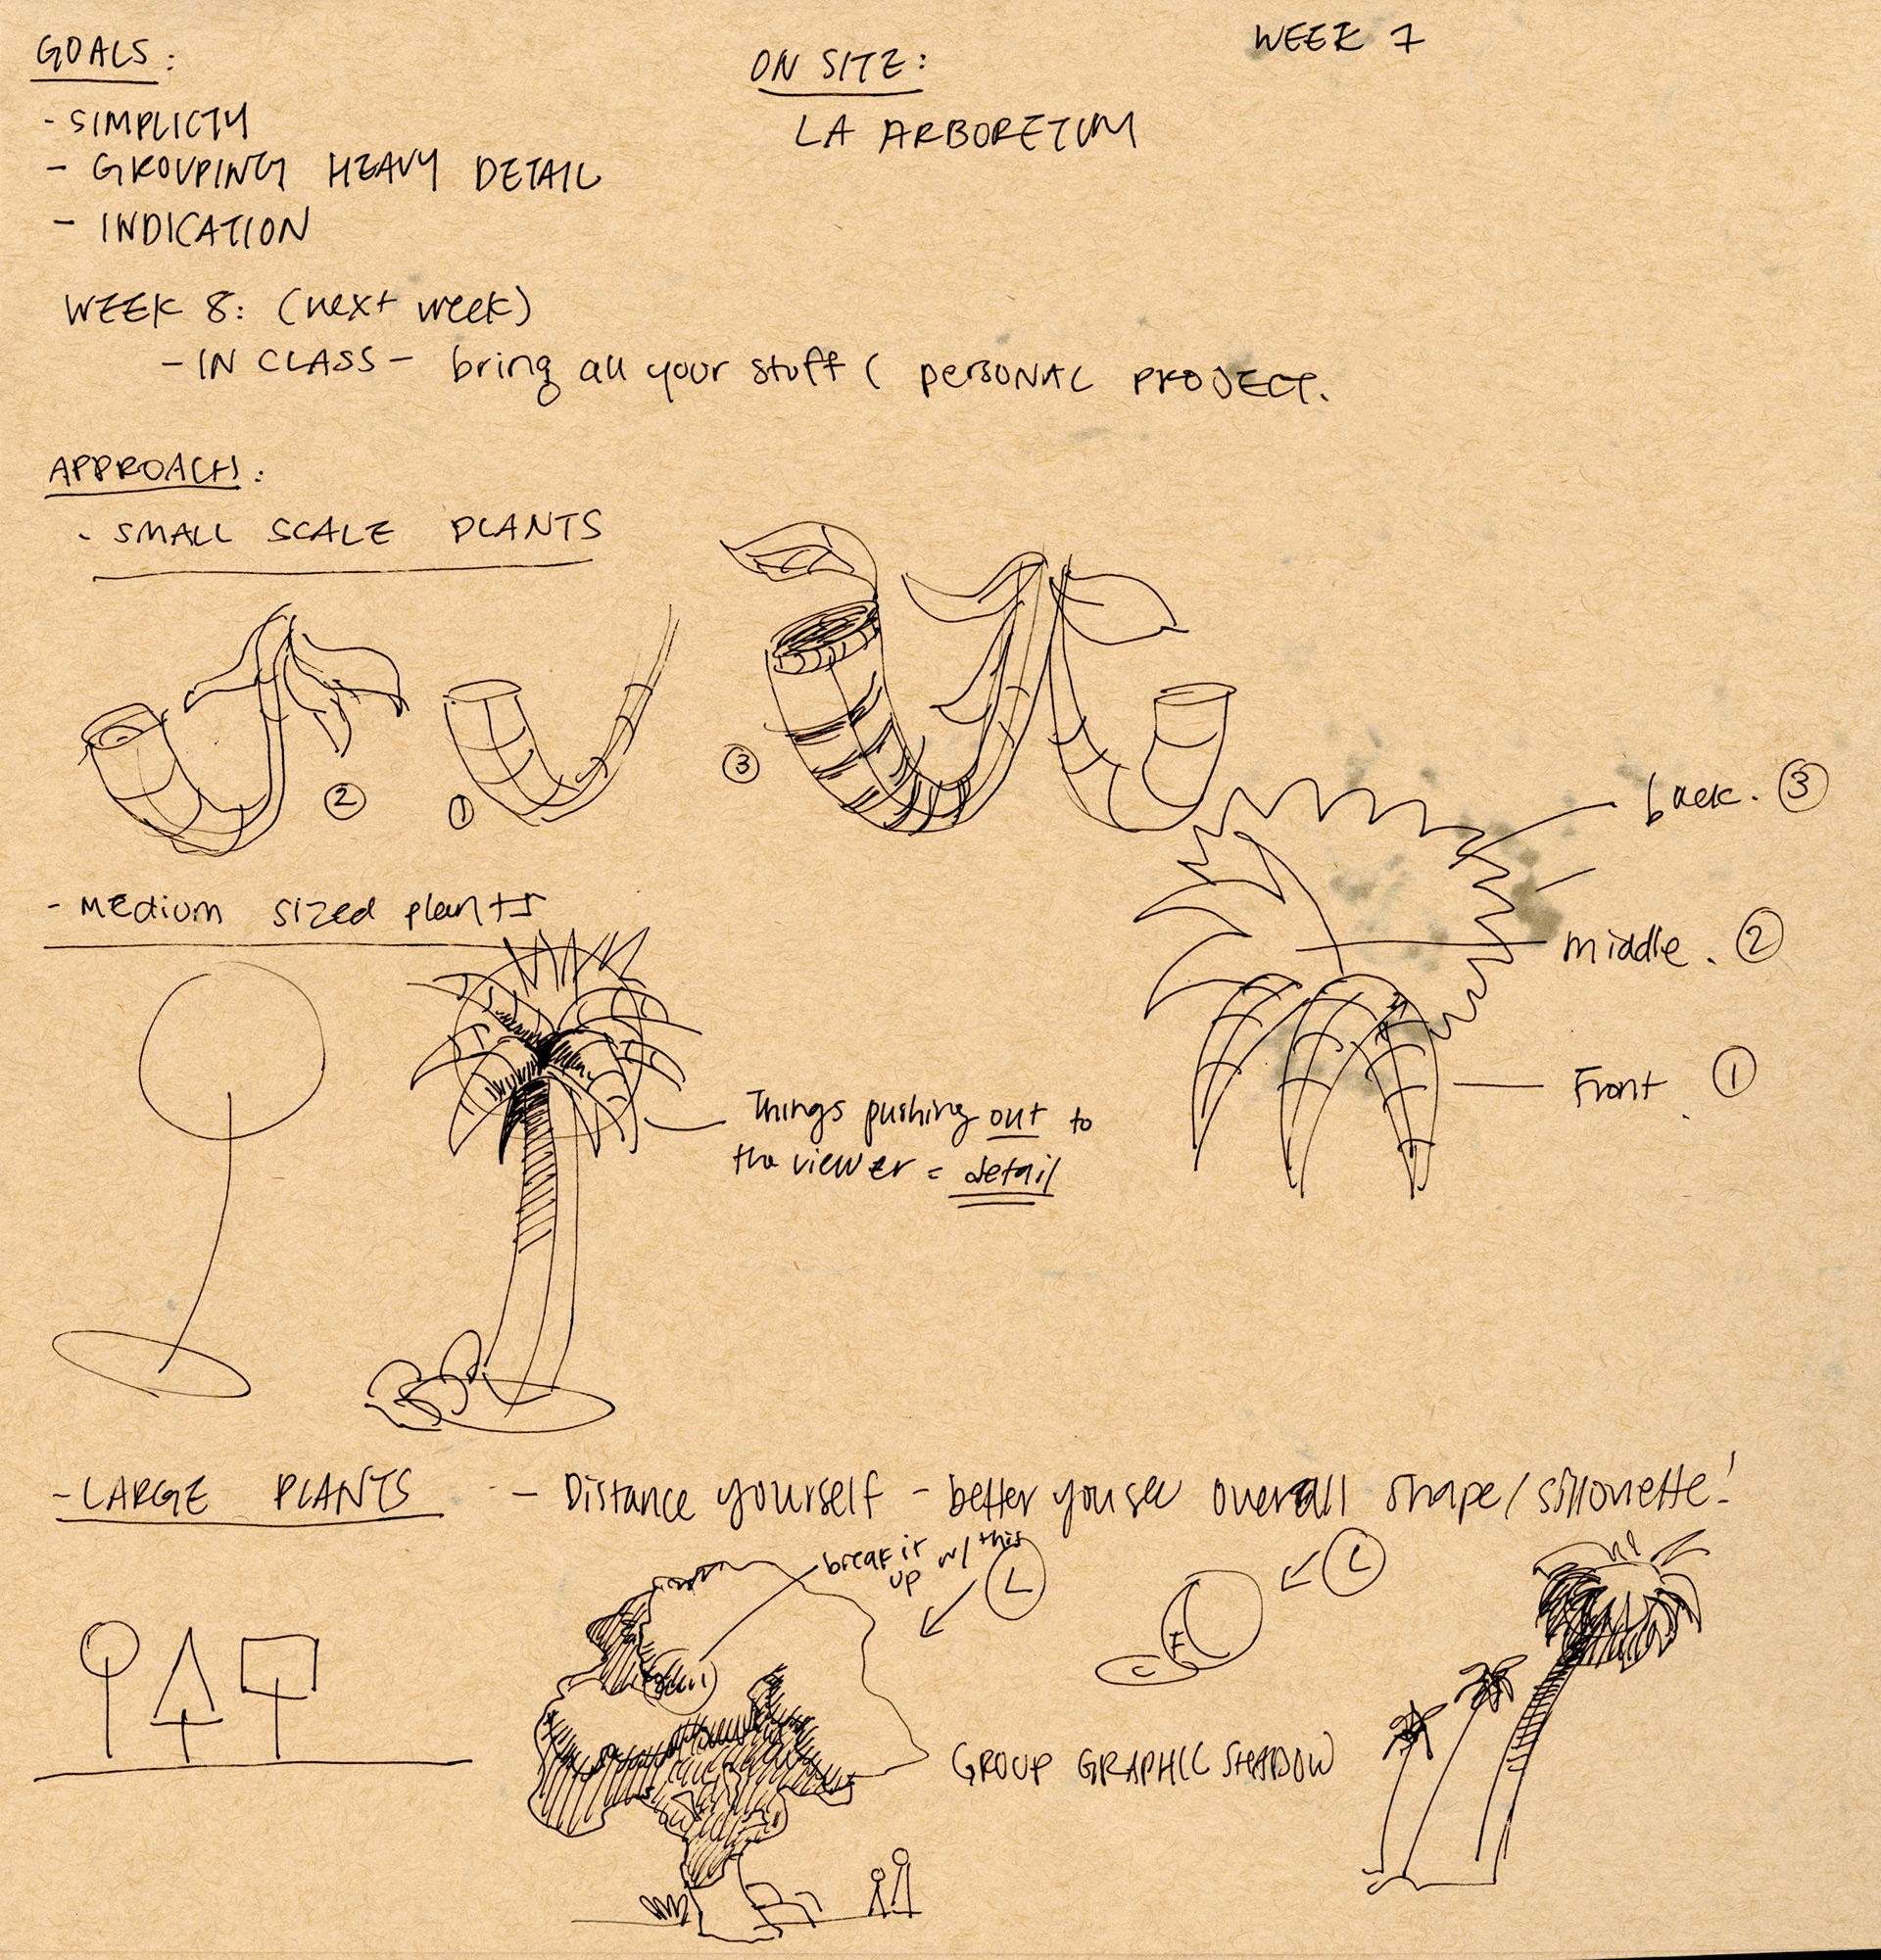 WEEK 7
GOALS:
- SIMPLICTY
- GROUPING HEAVY DETAIL
- INDICATION
ON SITE:
LA ARBORETUM
WEEK 8: (next week)
- IN CLASS - bring all your stuff ( PERSONAL PROJECT.
APPROACH:
- SMALL SCALE PLANTS
②
①
③
- MEDIUM SIZED plants
back. ③
middle. ②
Front. ①
Things pushing out to
the viewer = detail
- LARGE PLANTS - Distance yourself - better you see overall shape/sillouette!
break it w/ this
up
L
L
F
C
GROUP GRAPHIC SHADOW